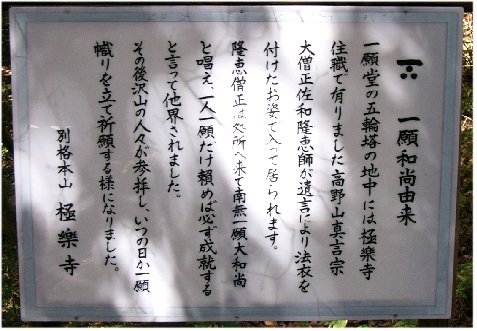 一願和尚由来
一願堂の五輪塔の地中には極楽寺
住職で有りました高野山真言宗
大僧正佐和隆恵師が遺言により法衣を
付けたお姿で入って居られます。
隆恵僧正は此所へ来て南無一願大和尚
と唱え、一人一願だけ頼めば必ず成就する
と言って他界されました。
その後沢山の人々が参拝し、いつの日か一願
幟りを立て祈願する様になりました。
別格本山 極樂寺